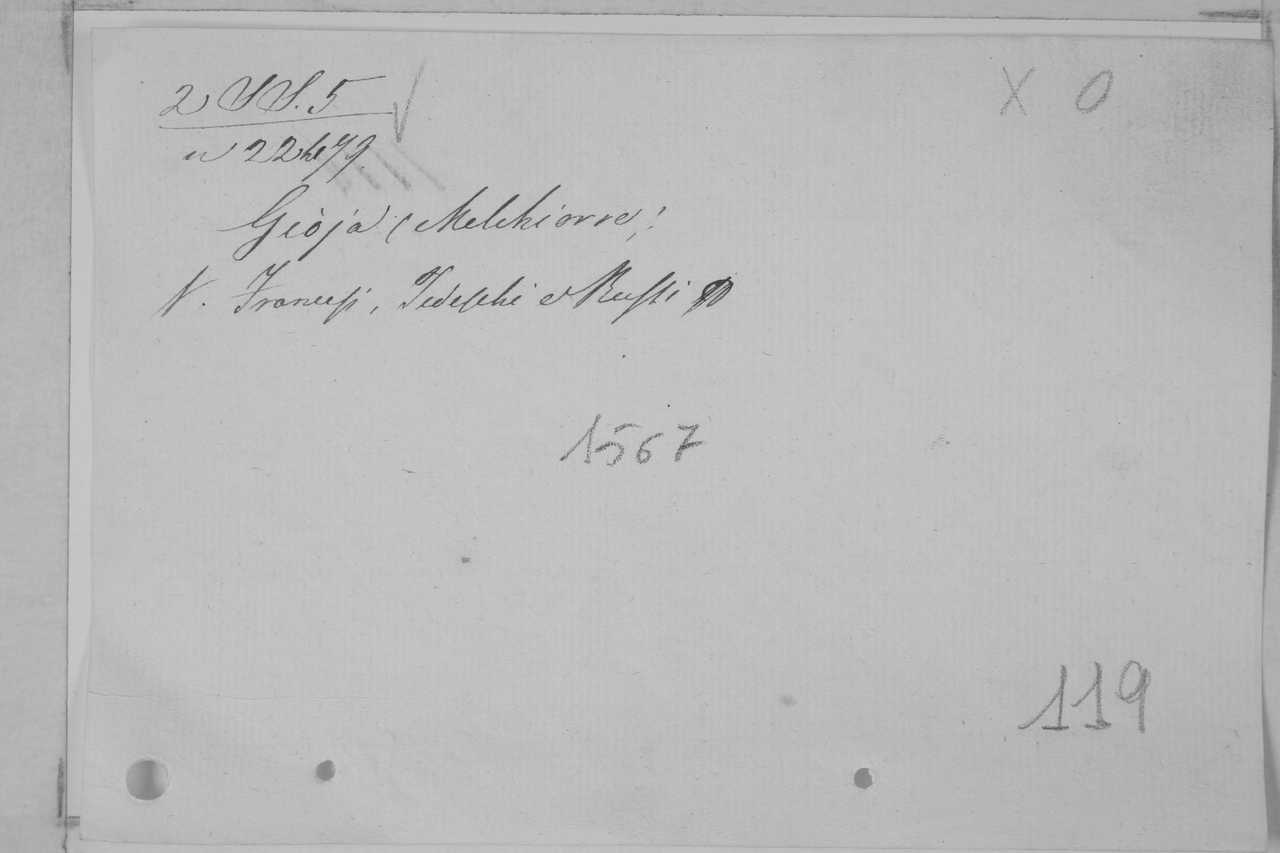 2 SS. 5
X 0
Gioja (Melchiorre)!
V. Francesi, Tedeschi e Russi
1567
119